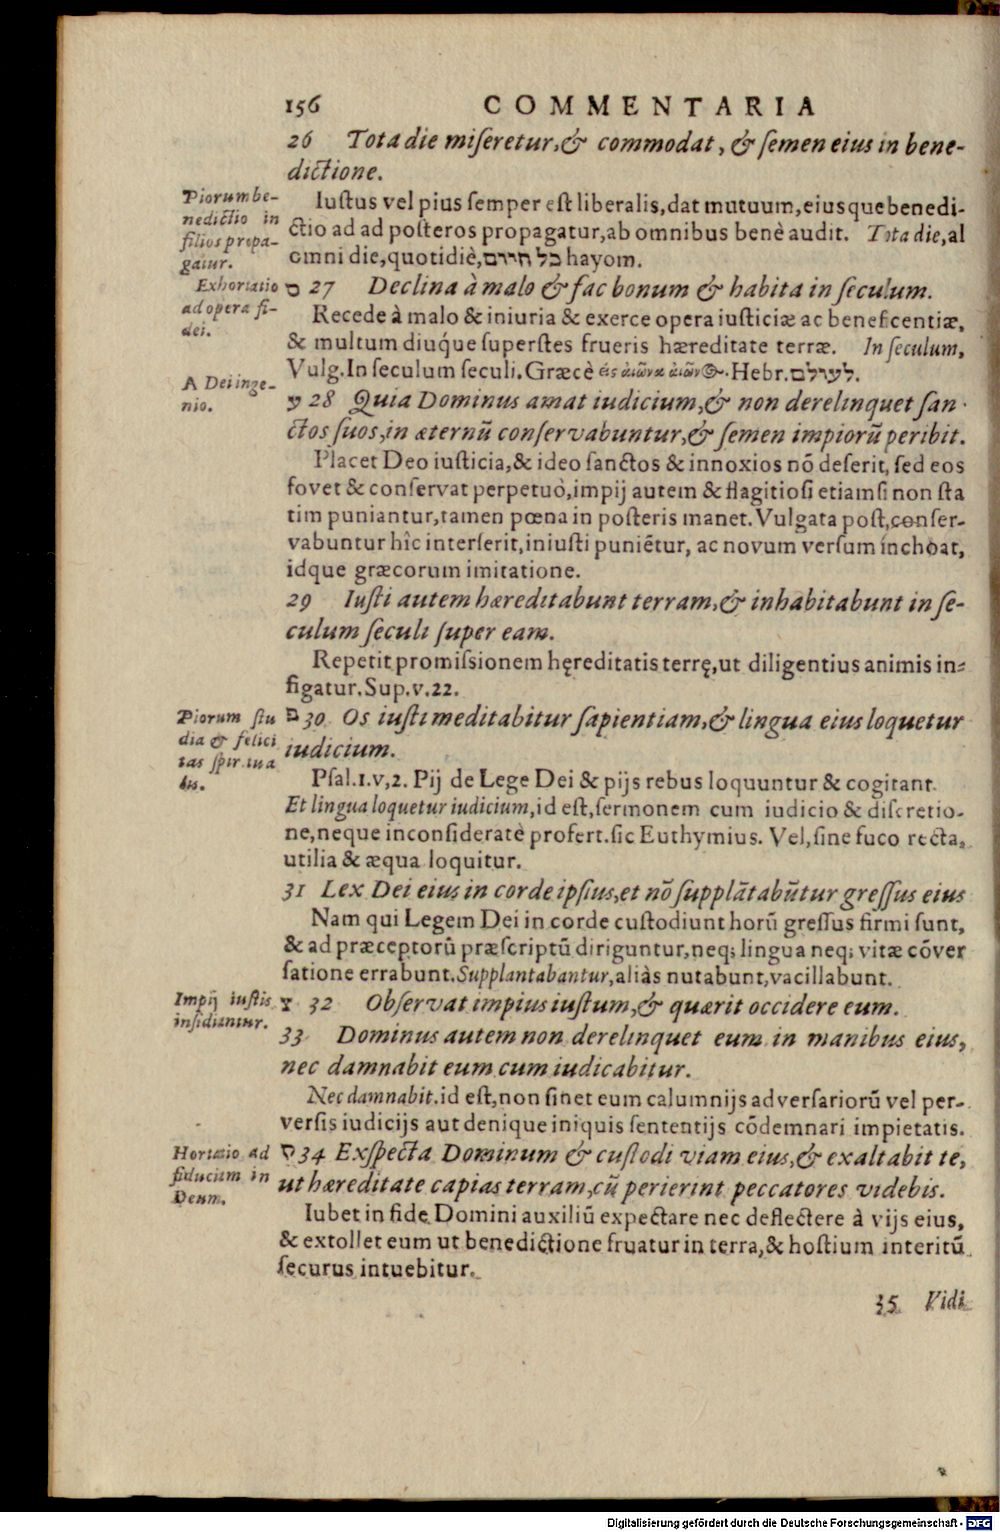 156 COMMENTARIA
26 Tota die miſeretur, & commodat, & ſemen eius in bene-
dictione.
Piorum be-
nedictio in
filios propa-
gatur.
Iuſtus vel pius ſemper eſt liberalis, dat mutuum, eiusque benedi-
ctio ad ad poſteros propagatur, ab omnibus benè audit. Tota die, al
omni die, quotidiè, כל חיום hayom.
Exhortatio
ad opera fi-
dei.
ס 27 Declina à malo & fac bonum & habita in ſeculum.
Recede à malo & iniuria & exerce opera iuſticiæ ac beneficentiæ,
& multum diuq́ue ſuperſtes frueris hæreditate terræ. In ſeculum,
Vulg. In ſeculum ſeculi. Græcè εἰς αἰῶνα αἰῶνος. Hebr. לעולם.
A Dei inge-
nio.
ע 28 Quia Dominus amat iudicium, & non derelinquet ſan-
ctos ſuos, in æternũ conſervabuntur, & ſemen impiorũ peribit.
Placet Deo iuſticia, & ideo ſanctos & innoxios nõ deſerit, ſed eos
fovet & conſervat perpetuò, impij autem & flagitioſi etiamſi non ſta
tim puniantur, tamen pœna in poſteris manet. Vulgata poſt, conſer-
vabuntur hîc interſerit, iniuſti puniẽtur, ac novum verſum inchoat,
idque græcorum imitatione.
29 Iuſti autem hæreditabunt terram, & inhabitabunt in ſe-
culum ſeculi ſuper eam.
Repetit promiſsionem hęreditatis terrę, ut diligentius animis in-
figatur. Sup. v. 22.
Piorum ſtu
dia & felici
tas ſpiritua
lis.
פ 30 Os iuſti meditabitur ſapientiam, & lingua eius loquetur
iudicium.
Pſal. 1. v, 2. Pij de Lege Dei & pijs rebus loquuntur & cogitant.
Et lingua loquetur iudicium, id eſt, ſermonem cum iudicio & diſcretio-
ne, neque inconſideratè profert. ſic Euthymius. Vel, ſine fuco recta,
utilia & æqua loquitur.
31 Lex Dei eius in corde ipſius, et nõ ſupplãtabũtur greſſus eius
Nam qui Legem Dei in corde cuſtodiunt horũ greſſus firmi ſunt,
& ad præceptorũ præſcriptũ diriguntur, neq; lingua neq; vitæ cõver
ſatione errabunt. Supplantabantur, aliàs nutabunt, vacillabunt.
Impij iuſtis
inſidiantur.
צ 32 Obſervat impius iuſtum, & quærit occidere eum.
33 Dominus autem non derelinquet eum in manibus eius,
nec damnabit eum cum iudicabitur.
Nec damnabit. id eſt, non ſinet eum calumnijs adverſariorũ vel per-
verſis iudicijs aut denique iniquis ſententijs cõdemnari impietatis.
Hortatio ad
fiduciam in
Deum.
ק 34 Exſpecta Dominum & cuſtodi viam eius, & exaltabit te,
ut hæreditate capias terram, cũ perierint peccatores videbis.
Iubet in fide Domini auxiliũ expectare nec deflectere à vijs eius,
& extollet eum ut benedictione fruatur in terra, & hoſtium interitũ
ſecurus intuebitur.
35 Vidi
Digitalisierung gefördert durch die Deutsche Forschungsgemeinschaft - DFG